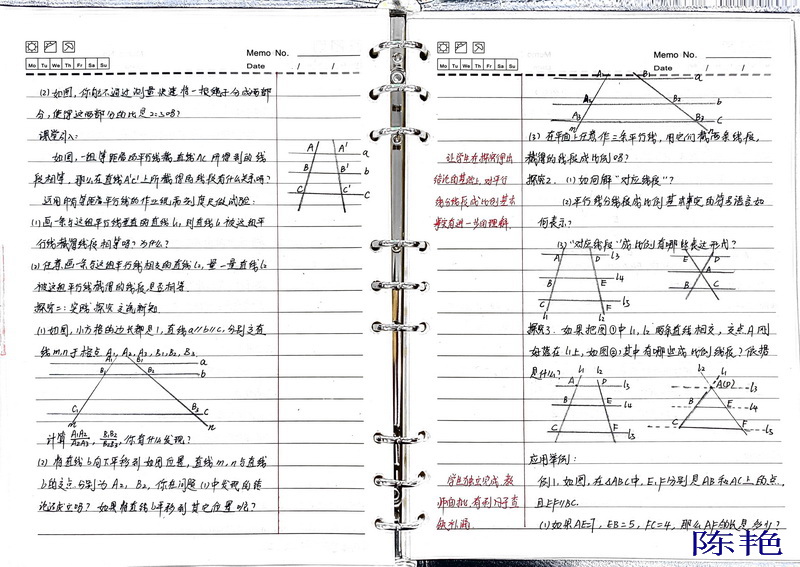 Memo No.
Mo Tu We Th Fr Sa Su
Date / /
(2) 如图，你能不通过测量快速将一根绳子分成两部
分，使得这两部分的比是2:3吗?
课堂引入:
如图，一组等距离的平行线截直线AC所得到的线
段相等，那么在直线A'C'上所截得的线段有什么关系呢?
A A' a
B B' b
C C' c
(1) 画一条与这组平行线垂直的直线l₁，则直线l₁被这组平
行线截得线段相等吗？为什么？
(2) 任意画一条与这组平行线相交的直线l₂，量一量直线l₂
被这组平行线截得的线段是否相等.
探究二：实践探究 交流新知
(1) 如图，小方格的边长都是1，直线a∥b∥c，分别交直
线m,n于格点A₁,A₂,A₃,B₁,B₂,B₃.
A₁ B₁ a
B₁ B₂ b
C₁ B₃ C
m n
计算 A₁A₂/A₂A₃, B₁B₂/B₂B₃，你有什么发现?
(2) 将直线b向下平移到如图位置，直线m,n与直线
b的交点分别为A₂，B₂，你在问题(1)中发现的结
论还成立吗？如果将直线b平移到其它位置呢?
Memo No.
Mo Tu We Th Fr Sa Su
Date / /
A₁ B₁ a
A₂ B₂ b
A₃ B₃ C
m n
(3) 在平面上任意作三条平行线，用它们截两条线段，
截得的线段成比例吗?
让学生在探究得出
结论的基础上，对平行
线分线段成比例基本
事实有进一步的理解.
探究2. (1) 如何理解“对应线段”?
(2) 平行线分线段成比例基本事实的符号语言如
何表示?
(3) “对应线段”成比例有哪些表达形式?
A D l₃
B E l₄
C F l₅
l₁ l₂
E D
A
B C
探究3. 如果把图①中l₁,l₂两条直线相交，交点A刚
好落在l₃上，如图②，其中有哪些成比例线段?依据
是什么?
l₁ l₂
A D l₃
B E l₄
C F l₅
l₂ l₁
A(D) l₃
B E l₄
C F l₅
应用举例:
例1. 如图，在△ABC中，E、F分别是AB和AC上的点，
且EF∥BC.
(1) 如果AE=7，EB=5，FC=4，那么AF的长是多少?
学生独立完成，教
陈艳